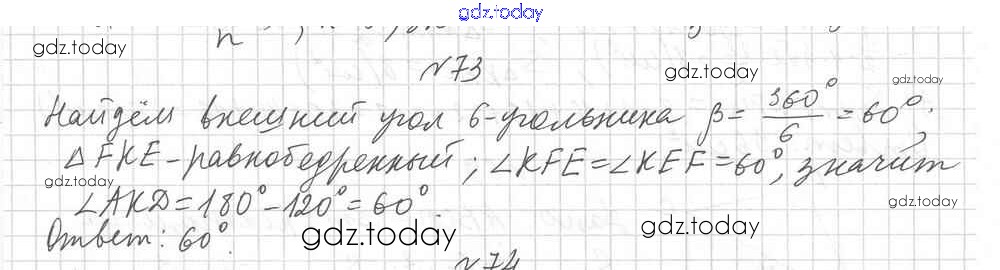 gdz.today
gdz.today
n
№73
gdz.today
gdz.today
Найдём внешний угол 6-угольника β = 360°/6 = 60°;
△FKE – равнобедренный; ∠KFE = ∠KEF = 60°, значит
gdz.today
∠AKD = 180° – 120° = 60°.
gdz.today
Ответ: 60°.
gdz.today
gdz.today
№74